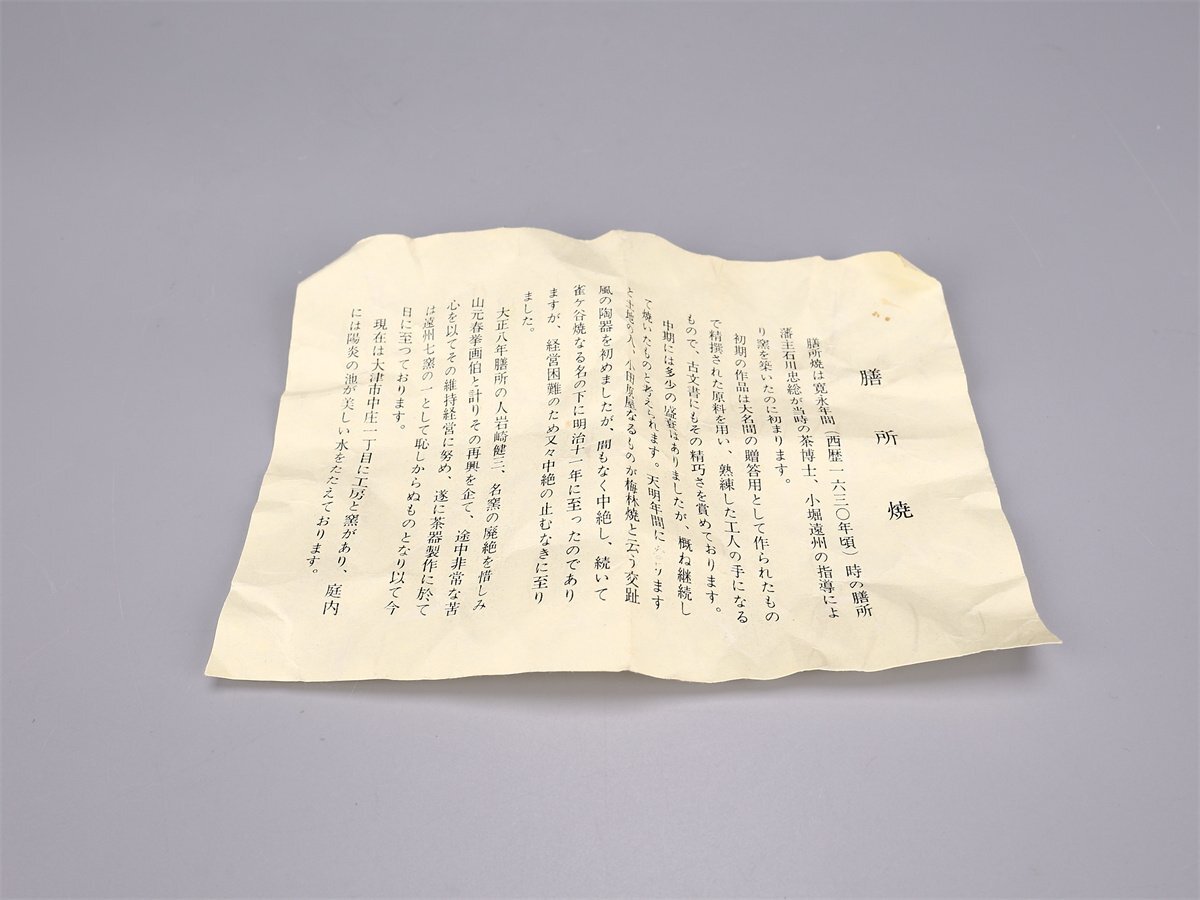 膳所焼
膳所焼は寛永年間(西歴一六三〇年頃)時の膳所
藩主石川忠総が当時の茶博士、小堀遠州の指導によ
り窯を築いたのに初まります。
初期の作品は大名間の贈答用として作られたもの
で精撰された原料を用い、熟練した工人の手になる
もので、古文書にもその精巧さを賞めております。
中期には多少の盛衰はありましたが、概ね継続し
て焼いたものと考えられます。天明年間に ります
と土地の人、小田原屋なるものが梅林焼と云う交趾
風の陶器を初めましたが、間もなく中絶し、続いて
雀ケ谷焼なる名の下に明治十一年に至ったのであり
ますが、経営困難のため又々中絶の止むなきに至り
ました。
大正八年膳所の人岩崎健三、名窯の廃絶を惜しみ
山元春挙画伯と計りその再興を企て、途中非常な苦
心を以てその維持経営に努め、遂に茶器製作に於て
は遠州七窯の一として恥しからぬものとなり以て今
日に至つております。
現在は大津市中庄一丁目に工房と窯があり、庭内
には陽炎の池が美しい水をたたえております。